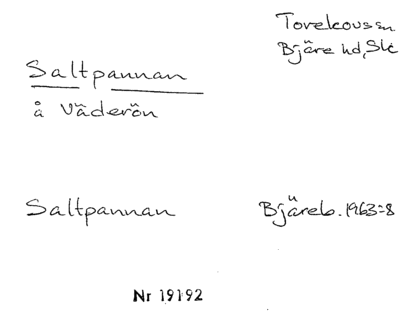 Torekov sn
Bjäre hd, Sk
Saltpannan
å Väderön
Saltpannan
Bjäreb. 1963:8
Nr 19192